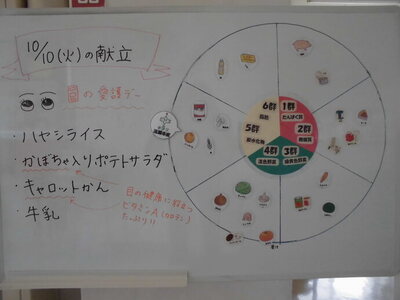 10/10(火)の献立
目の愛護デー
・ハヤシライス
・かぼちゃ入りポテトサラダ
・キャロットかん
・牛乳
目の健康に役立つ
ビタミンA(カロテン)
たっぷり!!
6群
脂肪
1群
たんぱく質
5群
炭水化物
2群
無機質
4群
淡色野菜
3群
緑黄色野菜